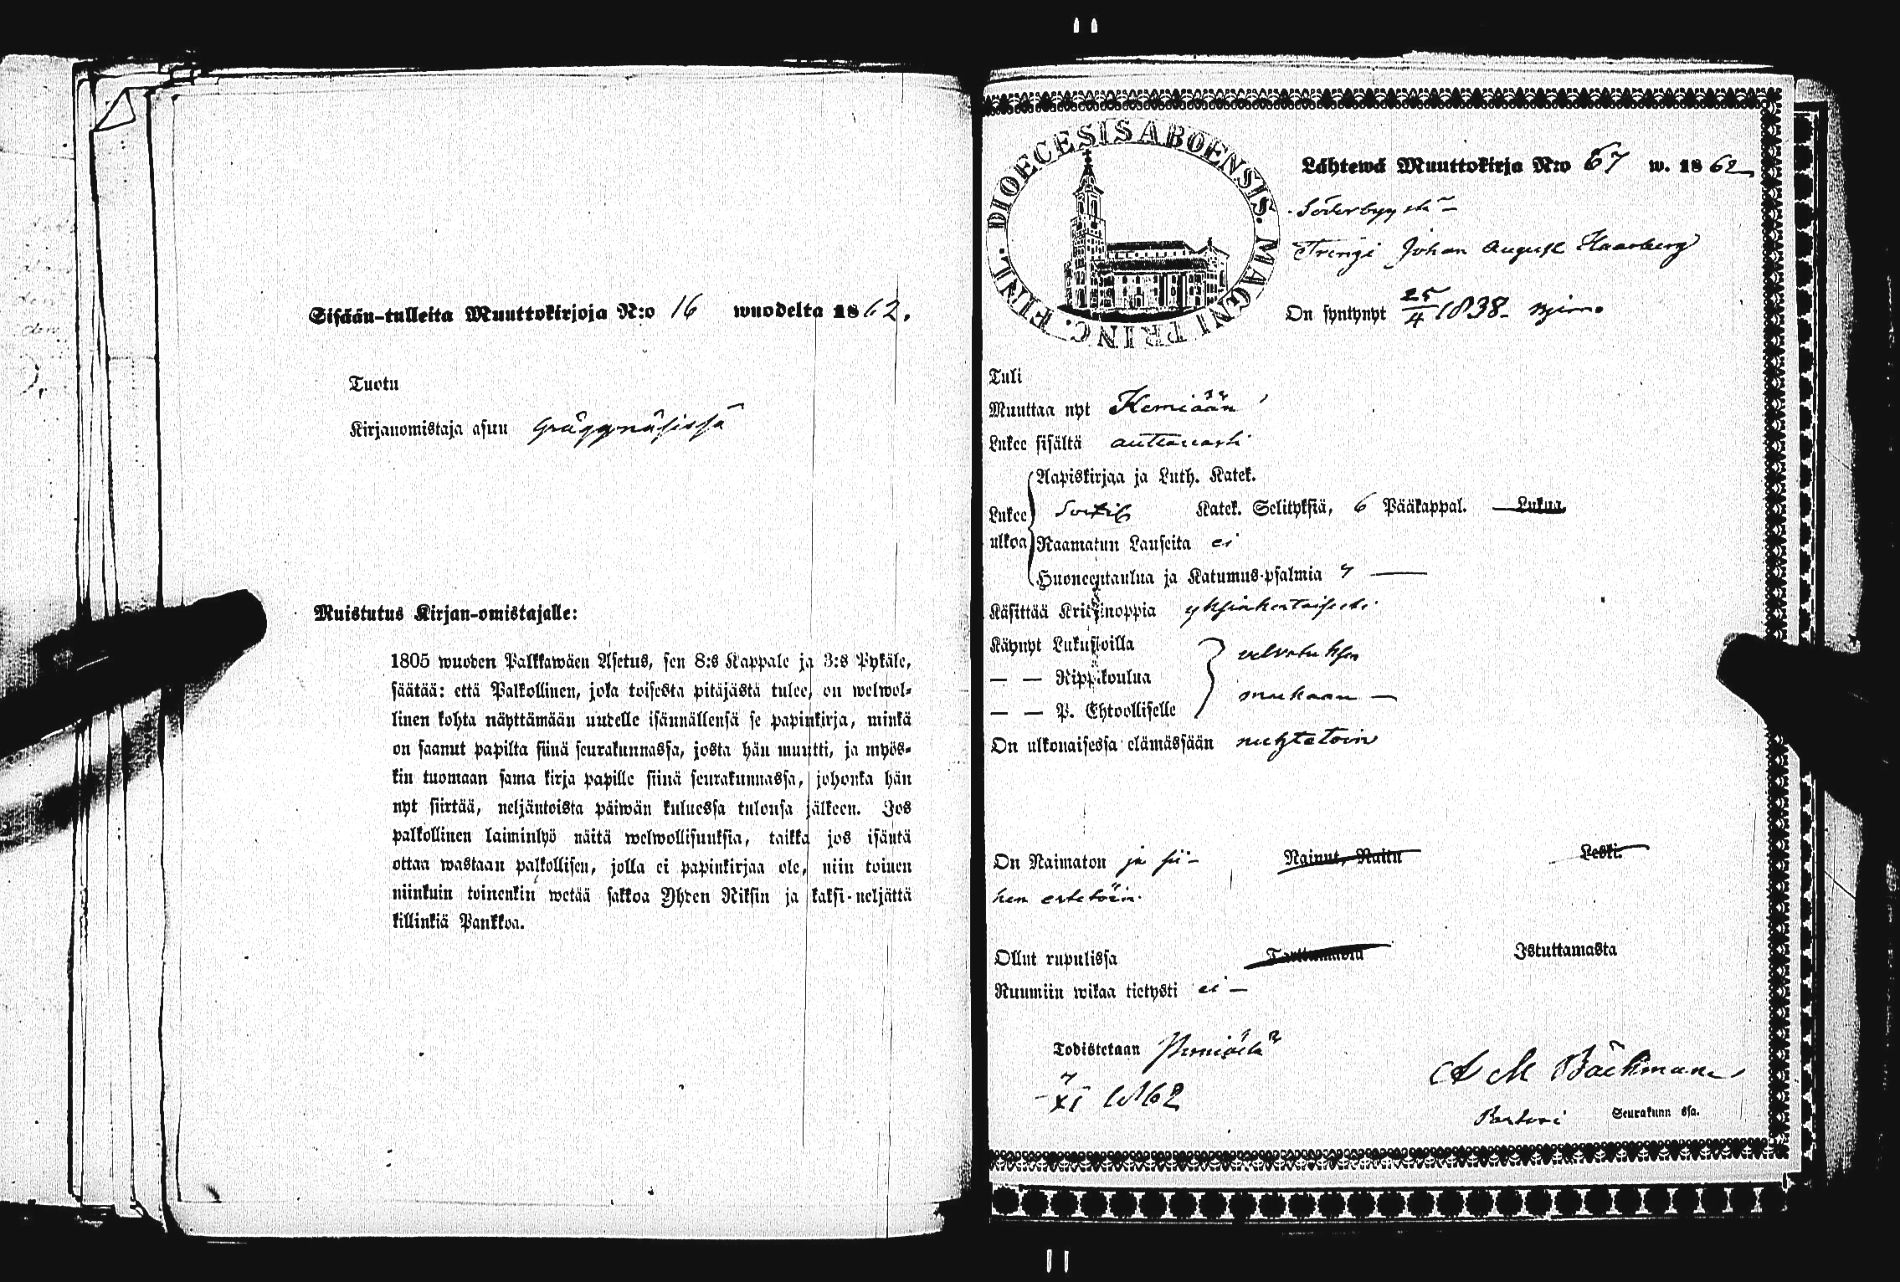 Sisään-tulleita Muuttokirjoja N:o 16 wuodelta 1862.
Tuotu
Kirjanomistaja asuu Gräggnäsissä
Muistutus Kirjan-omistajalle:
1805 wuoden Palkkawäen Asetus, sen 8:s Kappale ja 3:s Pykäle,
säätää: että Palkollinen, joka toisesta pitäjästä tulee, on welwol-
linen kohta näyttämään uudelle isännällensä se papinkirja, minkä
on saanut papilta siinä seurakunnassa, josta hän muutti, ja myös-
kin tuomaan sama kirja papille siinä seurakunnassa, johonka hän
nyt siirtää, neljäntoista päiwän kuluessa tulonsa jälkeen. Jos
palkollinen laiminlyö näitä welwollisuuksia, taikka jos isäntä
ottaa wastaan palkollisen, jolla ei papinkirjaa ole, niin toinen
niinkuin toinenkin wetää sakkoa Yhden Riksin ja kaksi-neljättä
killinkiä Pankkoa.
FINL. DIOECESIS ABOENSIS. MAGNI PRINC.
Lähtewä Muuttokirja N:o 67 w. 1862
Söderbyystä
Trengi Johan August Haarberg
On syntynyt 25/4 1838
Tuli
Muuttaa nyt Kemiöön
Lukee sisältä auttavasti
Aapiskirjaa ja Luth. Katek.
Lukee Katek. Selityksiä, 6 Pääkappal. Lukua
ulkoa Raamatun Lauseita ei
Huoneentaulua ja Katumus-psalmia 7
Käsittää Kristinoppia yksinkertaisesti
Käynyt Lukusioilla velvotuksen
— — Rippikoulua mukaan —
— — P. Ehtoolliselle
On ulkonaisessa elämässään nuhtetoin
On Naimaton ja sii- Nainut, Naitu Leski.
hen estetöin.
Ollut rupulissa Tarttumasta Istuttamasta
Ruumiin wikaa tietysti ei —
Todistetaan Perniöstä
7/XI 1862
A M Bäckman
Pastori Seurakunnassa.